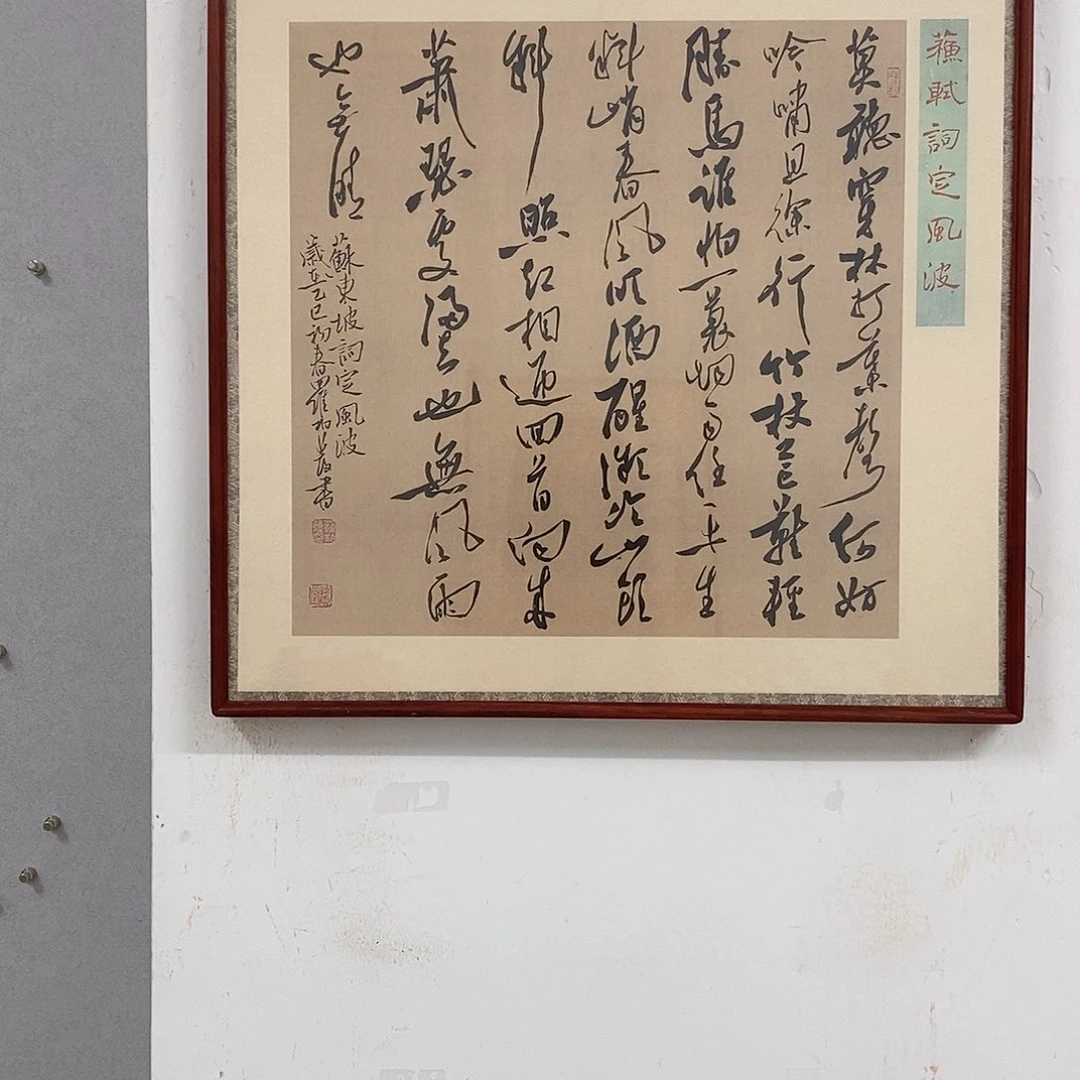 蘇軾詞定風波
莫聽穿林打葉聲何妨
吟嘯且徐行竹杖芒鞋輕
勝馬誰怕一蓑烟雨任平生
料峭春風吹酒醒微冷山頭
斜照却相迎回首向來
蕭瑟處歸去也無風雨
也無晴
蘇東坡詞定風波
歲在乙巳初春羅書